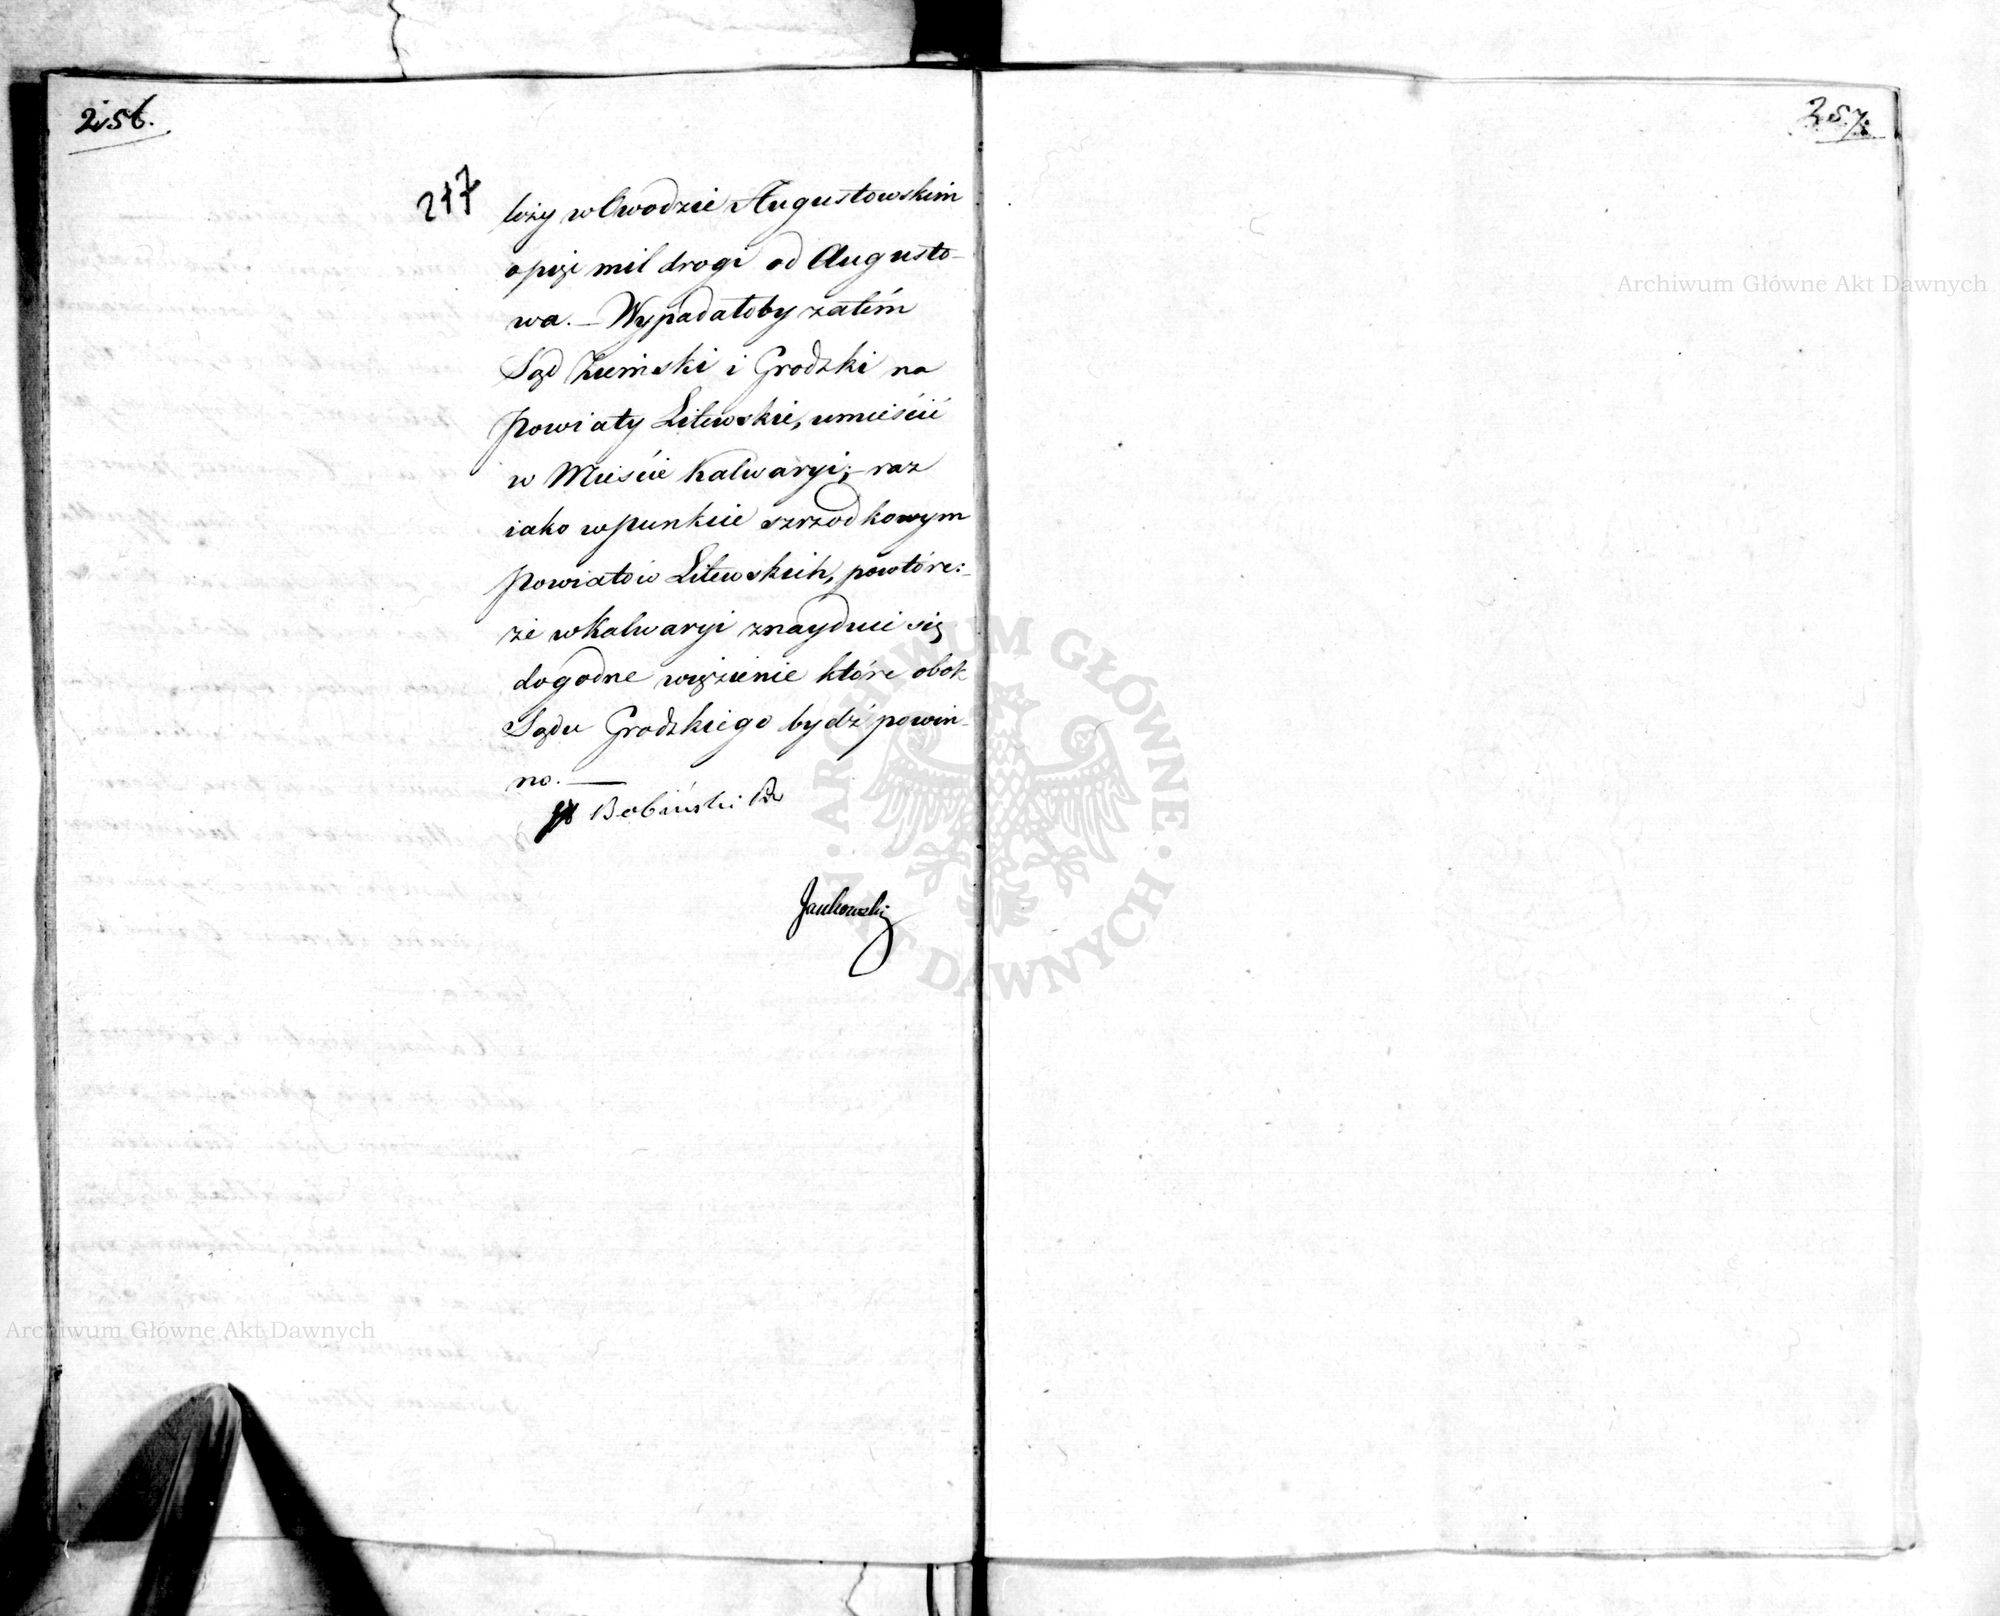 256.
217
leży w Obwodzie Augustowskim
o pięć mil drogi od Augusto-
wa. — Wypadałoby zatém
Sąd Ziemski i Grodzki na
Powiaty Litewskie, umieścić
w Mieście Kalwaryi; raz
iako w punkcie szrzodkowym
Powiatów Litewskich, powtóre:
że w Kalwaryi znayduie się
dogodne więzienie które obok
Sądu Grodzkiego bydź powin-
no. —
Bobiński
Jankowski
257.
Archiwum Główne Akt Dawnych
Archiwum Główne Akt Dawnych
ARCHIWUM GŁÓWNE AKT DAWNYCH